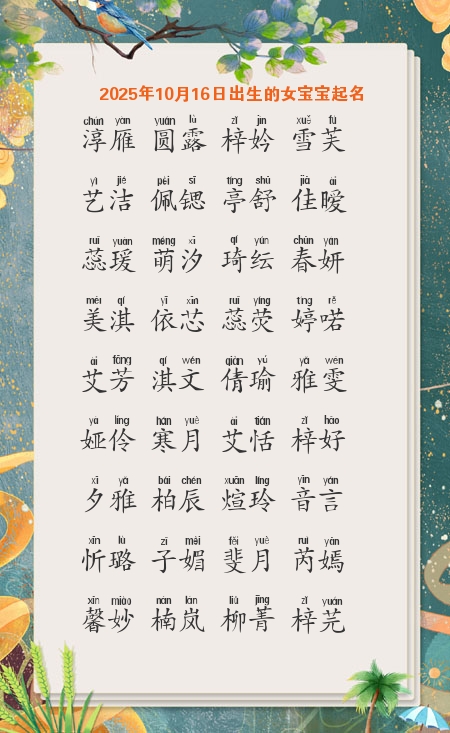 2025年10月16日出生的女宝宝起名
chún yàn yuán lù zǐ jìn xuě fú
淳雁 圆露 梓妗 雪芙
yì jié pèi sī tíng shū jiā ài
艺洁 佩锶 亭舒 佳暧
ruǐ yuàn méng xī qí yún chūn yán
蕊瑗 萌汐 琦纭 春妍
měi qí yī xīn ruǐ yíng tíng rě
美淇 依芯 蕊荧 婷喏
ài fāng qí wén qiàn yú yǎ wén
艾芳 淇文 倩瑜 雅雯
yà líng hán yuè ài tián zǐ hǎo
娅伶 寒月 艾恬 梓好
xī yǎ bǎi chén xuān líng yīn yán
夕雅 柏辰 煊玲 音言
xīn lù zǐ mèi fěi yuè ruì yān
忻璐 子媚 斐月 芮嫣
xīn miào nán lán liǔ jīng zǐ yuán
馨妙 楠岚 柳菁 梓芫